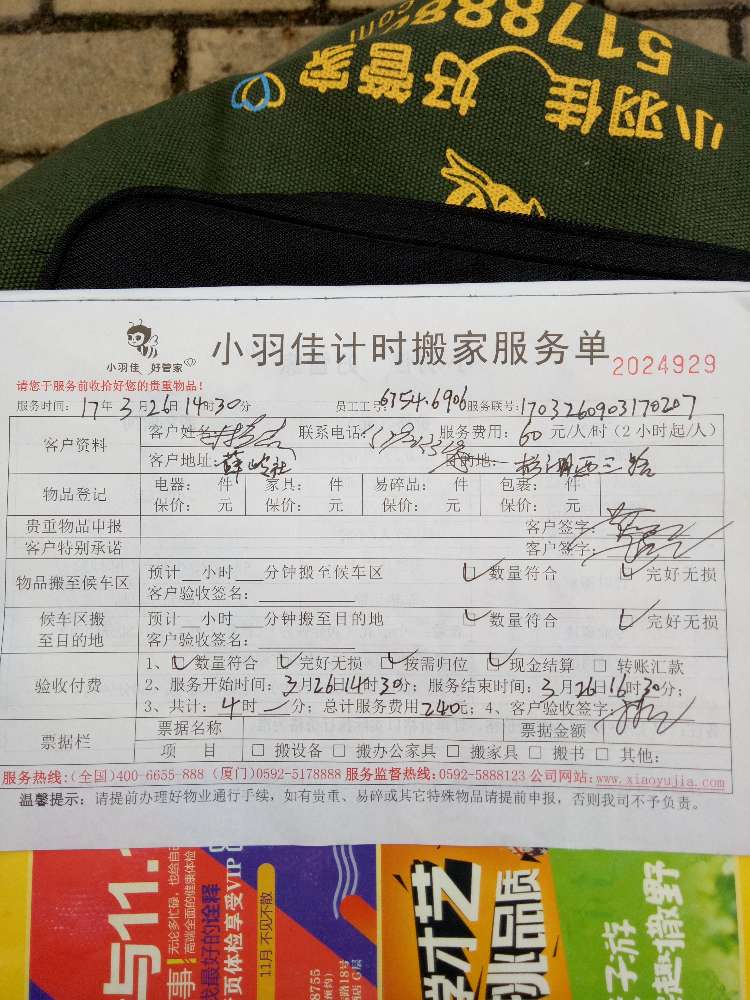 小羽佳 好管家
517888
.com
小羽佳 好管家
小羽佳计时搬家服务单
2024929
请您于服务前收拾好您的贵重物品!
服务时间: 17年3月26日14时30分 员工工号: 6754.6906 服务联号: 1703260903170207
客户资料
客户姓名: 联系电话: 服务费用: 60元/人/时(2小时起/人)
客户地址: 薛岭社 目的地: 西三路
物品登记
电器: 件 家具: 件 易碎品: 件 包裹: 件
保价: 元 保价: 元 保价: 元 保价: 元
贵重物品申报 客户签字:
客户特别承诺 客户签字:
物品搬至候车区
预计__小时___分钟搬至候车区 数量符合 完好无损
客户验收签名:
候车区搬至目的地
预计__小时___分钟搬至目的地 数量符合 完好无损
客户验收签名:
验收付费
1、数量符合 完好无损 按需归位 现金结算 □ 转账汇款
2、服务开始时间: 3月26日14时30分; 服务结束时间: 3月26日16时30分;
3、共计: 4时一分; 总计服务费用240元; 4、客户验收签字:
票据栏
票据名称 票据金额
项 目 □ 搬设备 □ 搬办公家具 □ 搬家具 □ 搬书 □ 其他:
服务热线:(全国)400-6655-888 (厦门)0592-5178888 服务监督热线:0592-5888123 公司网站:www.xiaoyujia.com
温馨提示: 请提前办理好物业通行手续, 如有贵重、易碎或其它特殊物品请提前申报, 否则我司不予负责。
与11.
无论多忙碌, 也给自己
高端全面的健康体检
事!
最好的诠释
页体检享受VIP
11月 不见不散
8755
路18号
店G层
学才艺
品质
子游
趣撒野